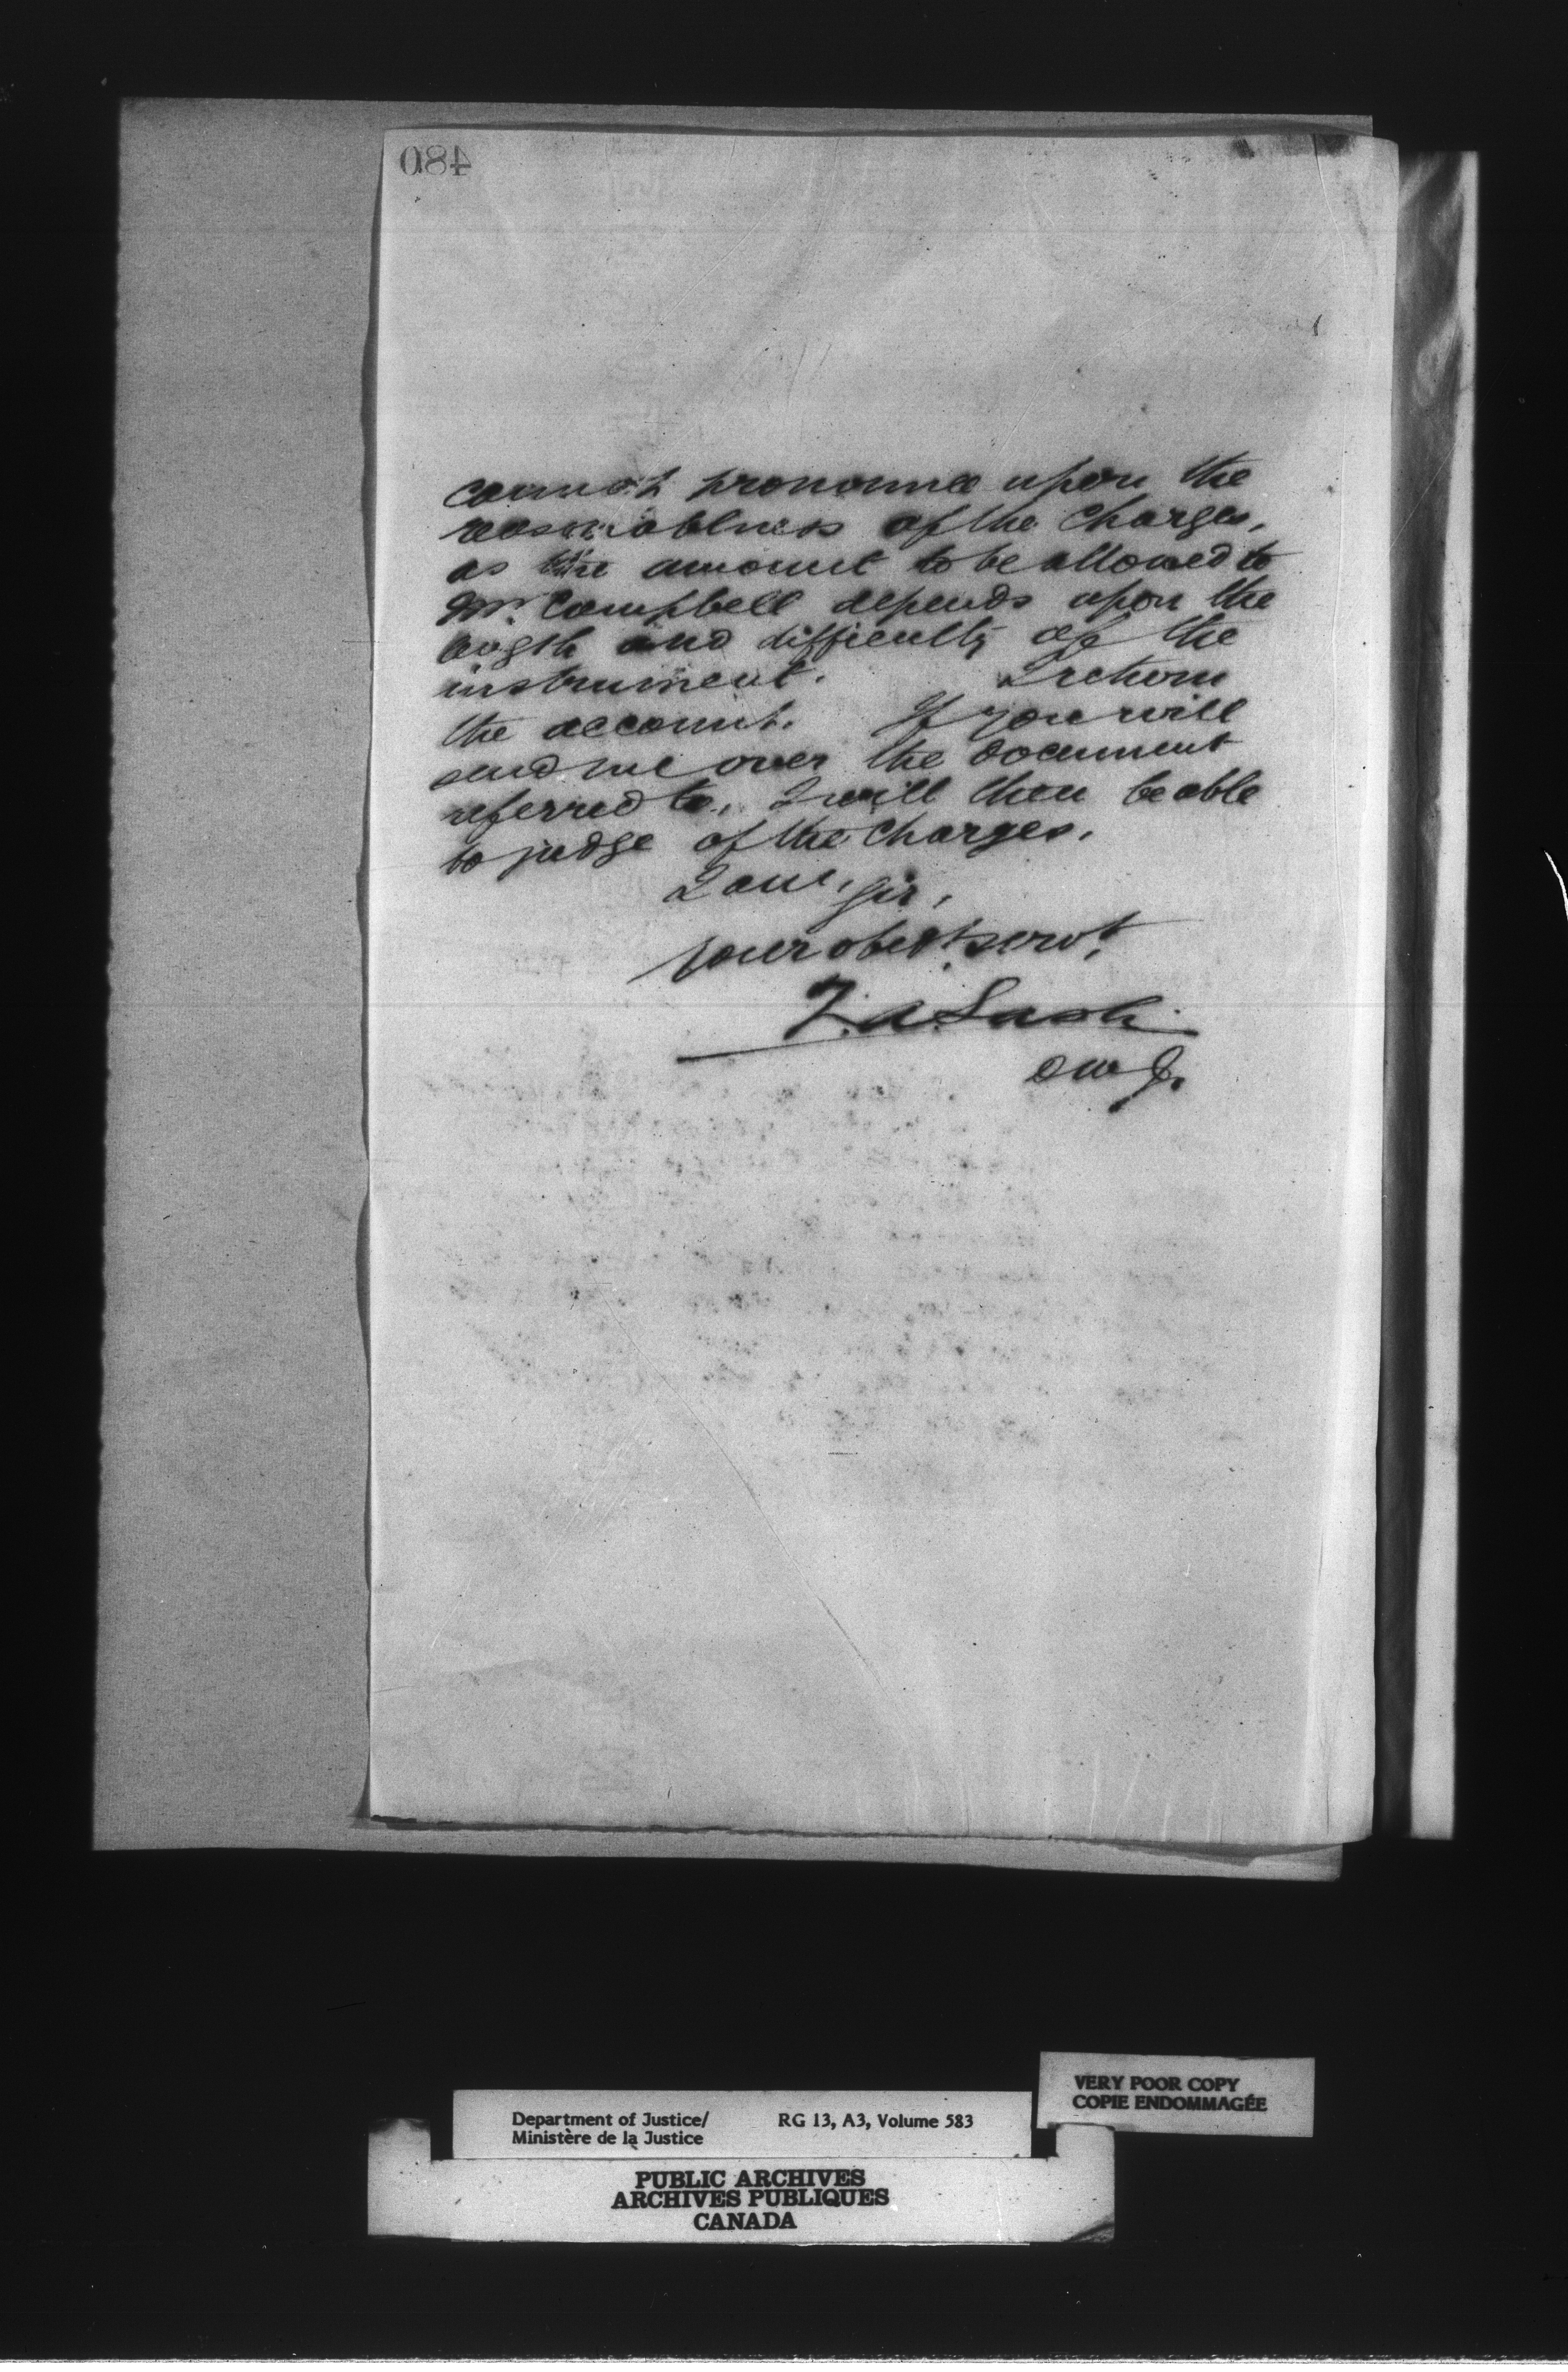 480
cannot pronounce upon the
reasonableness of the charges,
as the amount to be allowed to
Mr. Campbell depends upon the
length and difficulty of the
instrument. I return
the account. If you will
send me over the document
referred to, I will then be able
to judge of the charges.
I am, Sir,
your obedt. servt.
Z. A. Lash
D M J.
VERY POOR COPY
COPIE ENDOMMAGÉE
Department of Justice/ RG 13, A3, Volume 583
Ministère de la Justice
PUBLIC ARCHIVES
ARCHIVES PUBLIQUES
CANADA